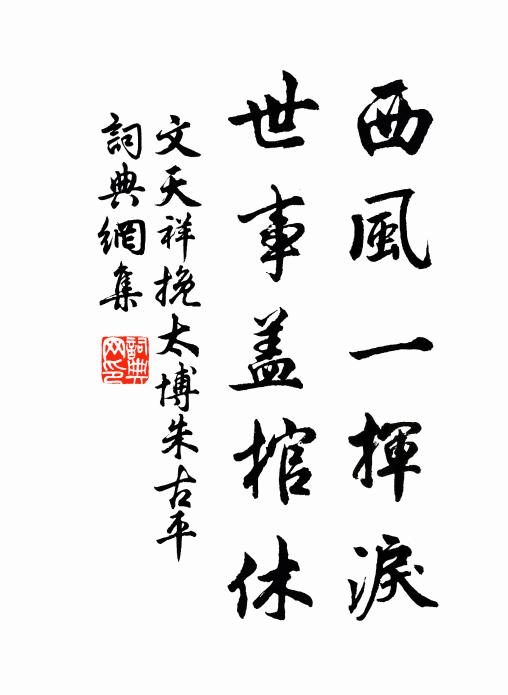 西風一揮淚
世事盖棺休
文天祥挽太博朱古平
詞典網集
詞典网印